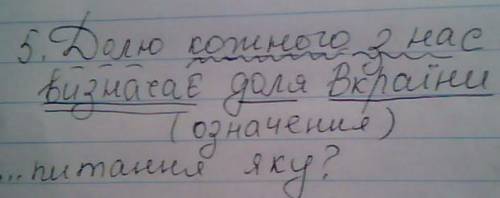 5. Долю кожного з нас
визначає доля Вкраїни
(означення)
...питання яку?